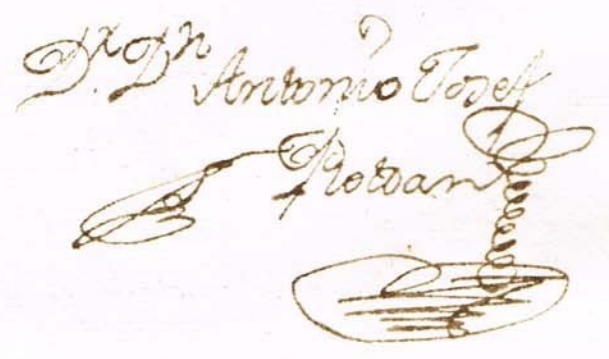 Dr. Dn. Antonio Josef
Roldan